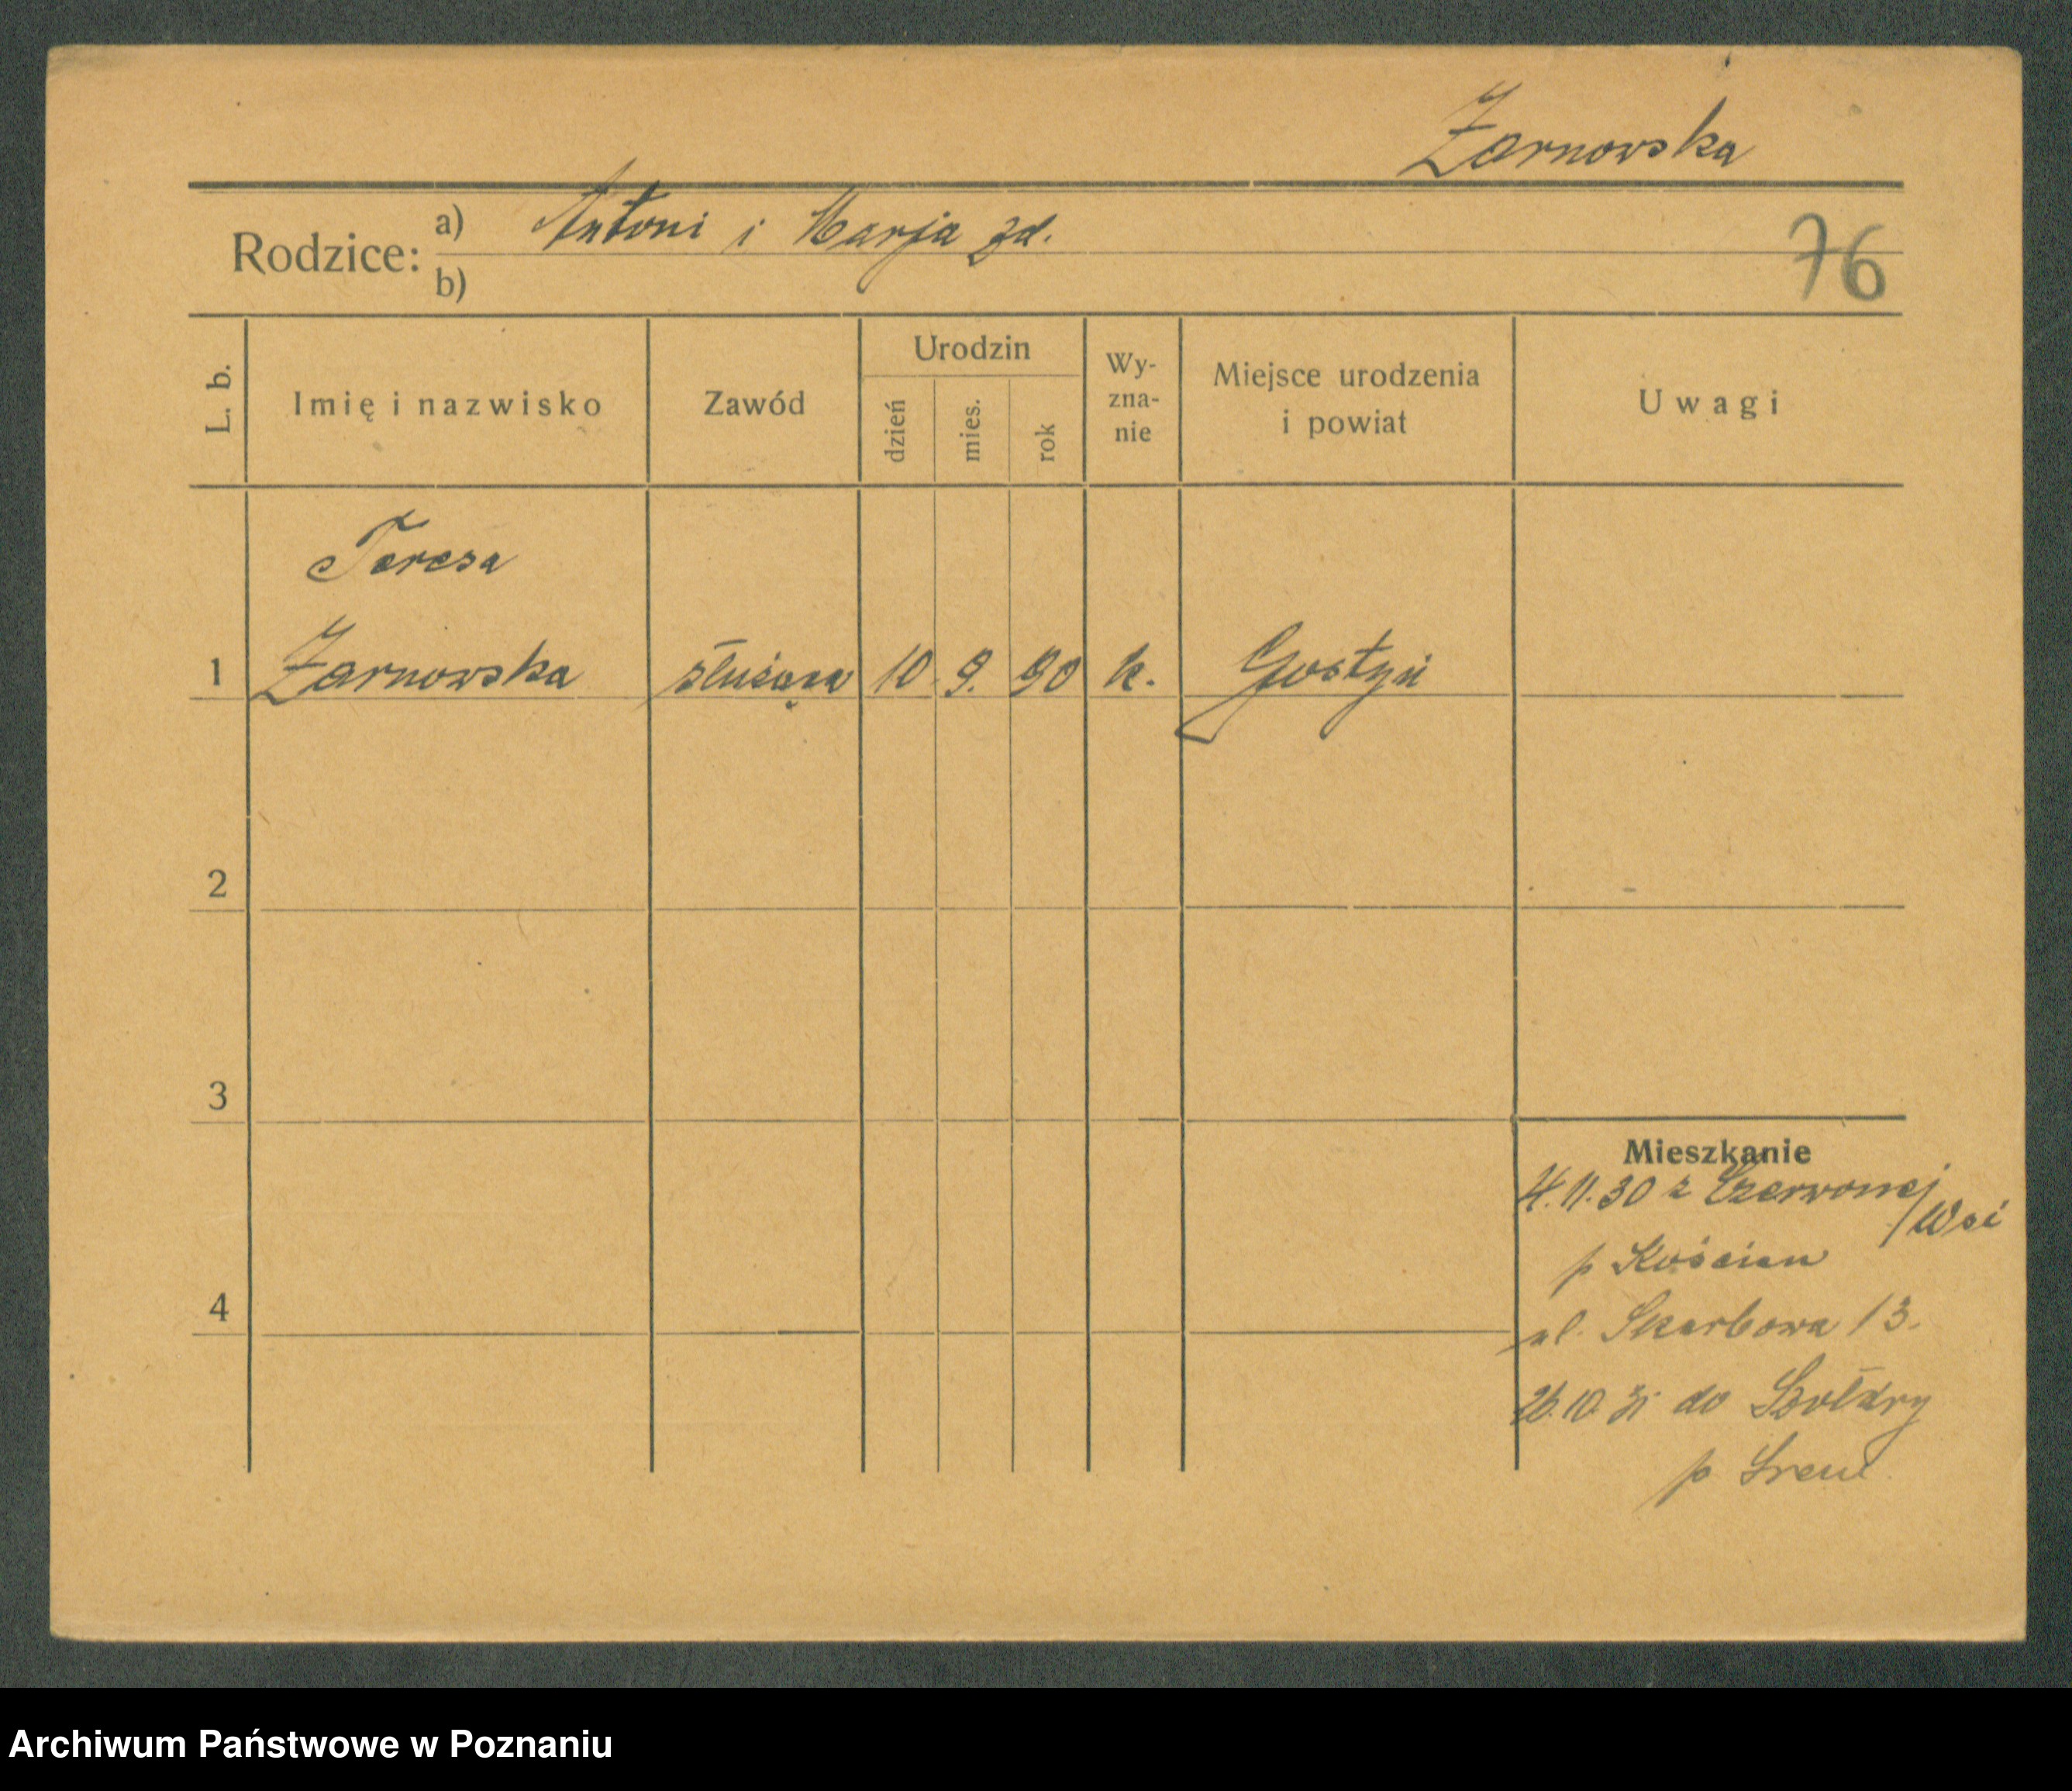 Żarnowska
Rodzice: a) Antoni i Marja zd.
b)
76
L. b.
Imię i nazwisko
Zawód
Urodzin
dzień
mies.
rok
Wy-
zna-
nie
Miejsce urodzenia
i powiat
Uwagi
Teresa
1 Żarnowska służąca 10. 9. 90 k. Gostyń
2
3
4
Mieszkanie
4.11.30 z Czerwonej
/Wsi
p Kościan
ul. Skarbowa 13.
26.10.31 do Szołdry
p Śrem
Archiwum Państwowe w Poznaniu